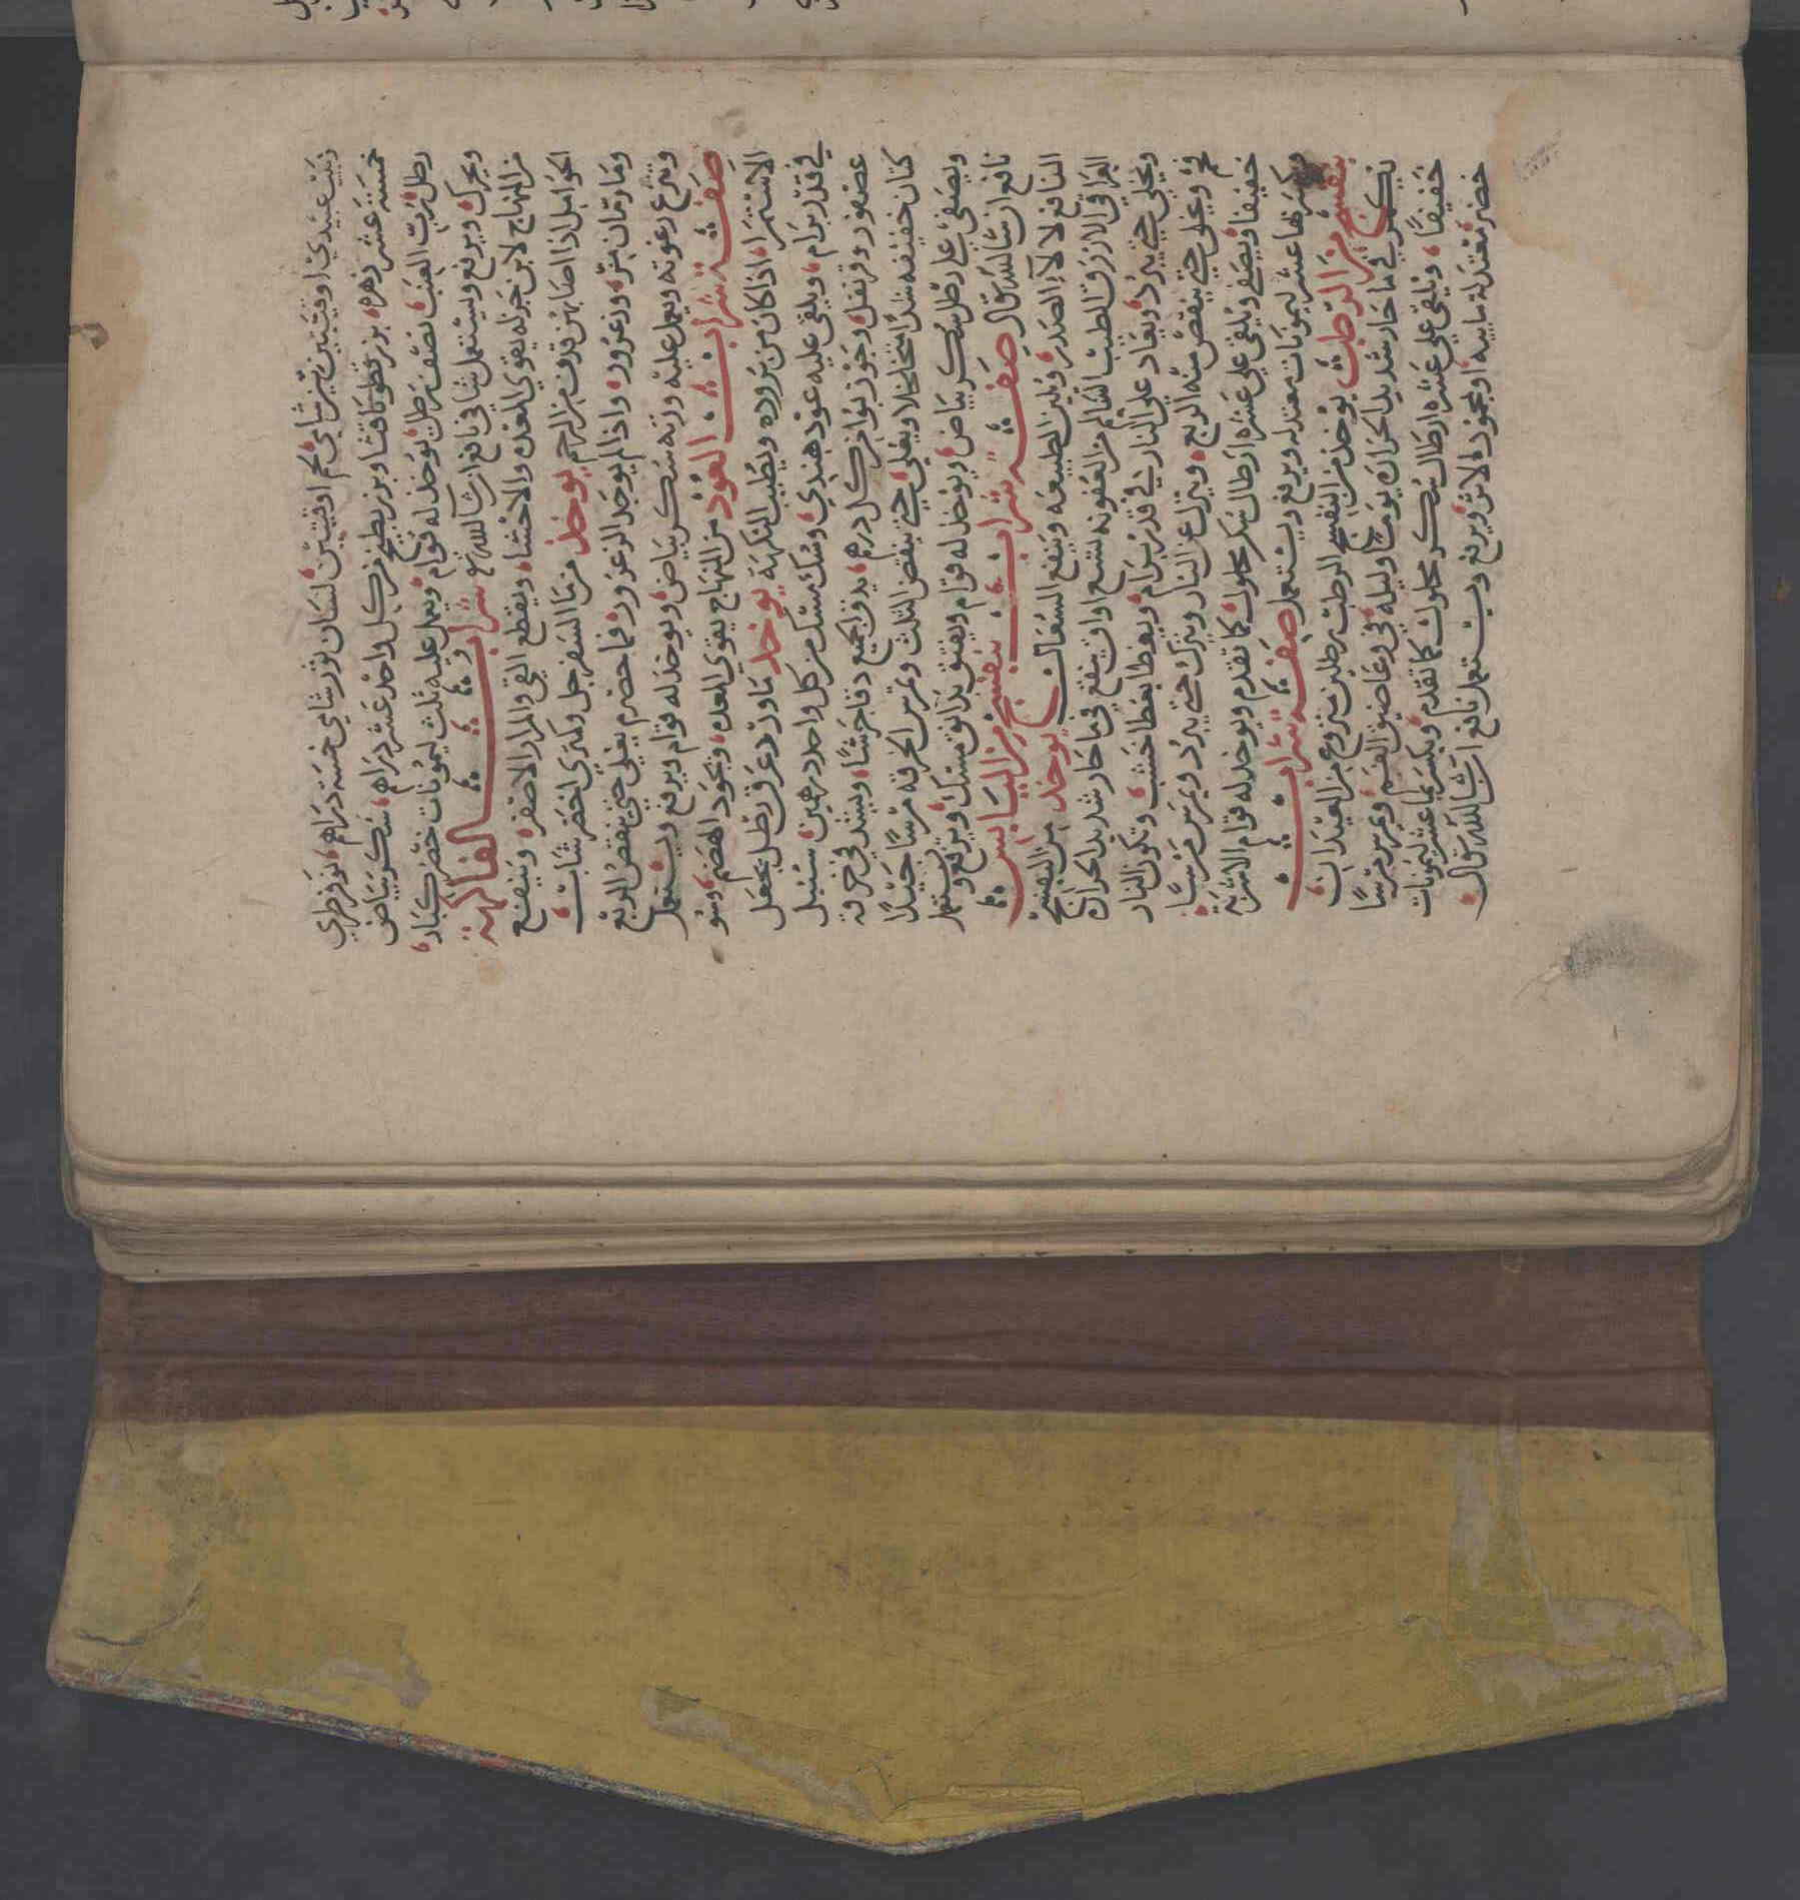 زبيب عبيدي اوقيتين تبر شامي لحم اوقيتين لسان ثور شامي خمسة دراهم نوفر طري
خمسة عشر زهره بزر قطونا قثا وبزر بطيخ من كل واحد عشر دراهم سكر بياض
رطل رب العنب نصف رطل يوخذ له قوام ويعمل عليه ثلث ليمونات خضر كباد
ويحرك ويرفع ويستعمل شافي نافع ان شا الله تع شراب الفاكهة
من المنهاج لابن جزله يقوي المعده والاحشاء ويقطع القي والمرار الاصفر وينفع
الحوامل اذا اصابهن قذف من الرحم يوخذ من ما السفرجل وكمثري اخضر شات
وما رمان مز وزعرور واذا لم يوجد الزعرور فما حضرم يغلى حتى ينقص الربع
وينزع رغوته ويعمل عليه وزنه سكر بياض ويوخذ له قوام ويرفع ويستعمل
صفة شراب العود من المنهاج يقوي المعده ويجود الهضم وسو
الاستمرا اذا كان من بروده ويطيب النكهة يوخذ ماورد عرق رطل يجعل
في قدر برام ويلقى عليه عود هندي وسك مسك من كل واحد درهمين سنبل
عصفور وقرنفل وجوزبوا من كل درهم يدق الجميع دقا جرشا ويشد في خرقة
كتان خفيفه شدا متخلخلا ويغلى حتى ينقص الثلث وتمرس الخرقه مرسا جيدا
ويصفى على رطل سكر بياض ويوخذ له قوام ويفتق بدانق مسك ويرفع ويستعمل
نافع ان شا الله تعالى صفة شراب بنفسج من اليابس
النافع لالام الصدر ويلين الطبيعه وينفع السعال يوخذ من البنفسج
العراقي الازرق الطيب السالم من العفونه تسع اواق ينقع في ما حار شديد الحراره
ويخلى حتى يبرد ويعاد على النار في قدر برام ويغطا بغطا خشب وتكون النار
فحم ويغلى حتى ينقص منه الربع وينزل عن النار ويترك حتى يبرد ويمرس مرسا
خفيفا ويصفى ويلقى على عشره ارطال سكر محلول كما تقدم ويوخذ له قوام الاشربة
ويكسر بها عشر ليمونات معتدله ويرفع ويستعمل صفة شراب
بنفسج من الرطب يوخذ من البنفسج الرطب رطلين منزوع من العيدان
يكمر في ما حار شديد الحراره يوما وليله في وعا ضيق الفم ويمرس مرسا
خفيفا ويلقى على عشره ارطال سكر محلول كما تقدم ويكسر بما عشر ليمونات
خضر معتدلة مابيه او بحوده الاثر ويرفع ويستعمل نافع ان شا الله تعالى